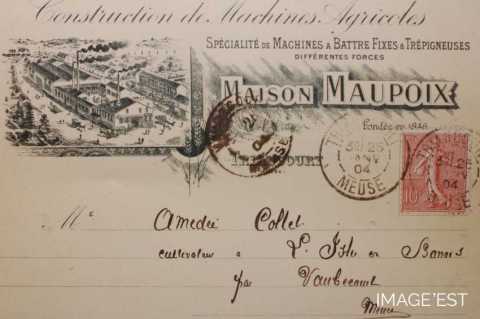 Construction de Machines Agricoles
SPÉCIALITÉ DE MACHINES A BATTRE FIXES & TRÉPIGNEUSES
DIFFÉRENTES FORCES
MAISON MAUPOIX
Fondée en 1846
04
MEUSE
04
10
Mr
Amedée Collet
cultivateur à L'Isle en Barrois
par Vaubecourt
Meuse
IMAGE'EST